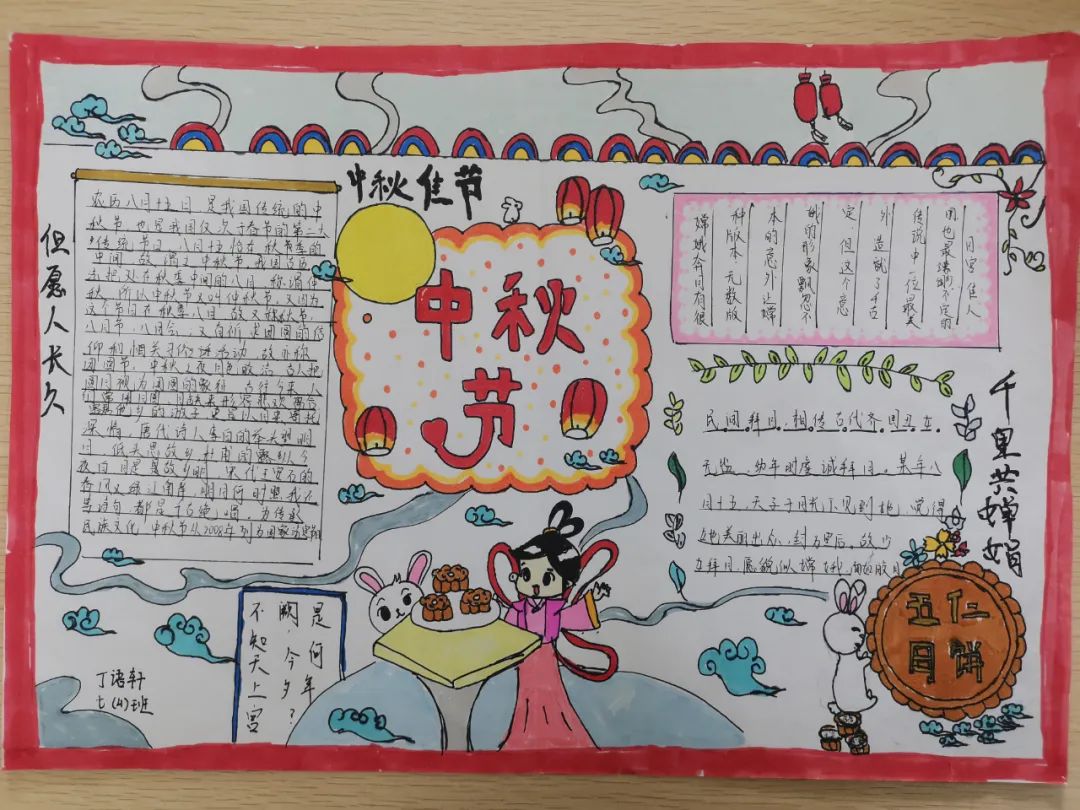 中秋佳节
中秋
节
但愿人长久
千里共婵娟
农历八月十五日是我国传统的中
秋节,也是我国仅次于春节的第二大
传统节日,八月十五恰在秋季的
中间,故谓之中秋节.我国古历
法把处在秋季中间的八月,称谓仲
秋,所以中秋节又叫仲秋节,又因为
这个节日在秋季八月,故又称秋节,
八月节,八月会,又有祈求团圆的信
仰和相关习俗活动,故亦称
团圆节,中秋之夜月色皎洁,古人把
圆月视为团圆的象征,古往今来,人
深情,唐代诗人李白的举头望明
月,低头思故乡,杜甫的露从今
夜白,月是故乡明,宋代王安石的
春风又绿江南岸,明月何时照我还
等诗句,都是千古绝唱,为传承
民族文化,中秋节从2008年列为国家法定节
月宫佳人
团也最
传说中一位最美
外,造就了千古
定.但这个意
娥的形象飘忽不
本的意外让嫦
种版本,无数版
嫦娥奔月有很
民间拜月,相传古代齐国丑女
无盐,幼年时虔诚拜月.某年八
月十五,天子于月光下见到她,觉得
她美丽出众,封为皇后.故八
月拜月,愿貌似嫦娥,面如皎月
是何年?
阙,今夕
不知天上宫
五仁
月饼
丁语轩
七(4)班